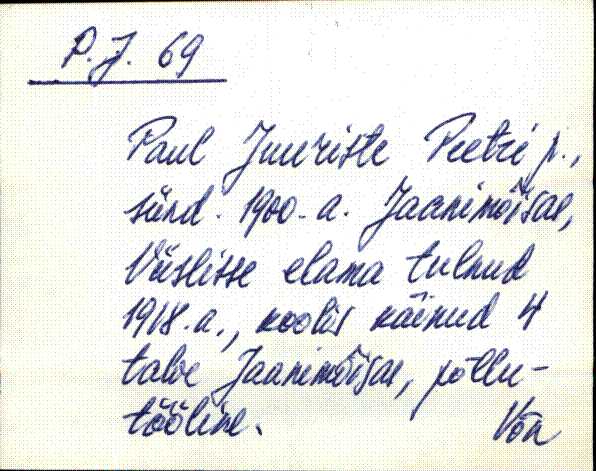 P. J. 69
Paul Juuriste Peetri p.,
sünd. 1900. a. Jaanimõisas,
elama tulnud
1918. a., koolis käinud 4
talve Jaanimõisas, põllu-
tööline.
Võn